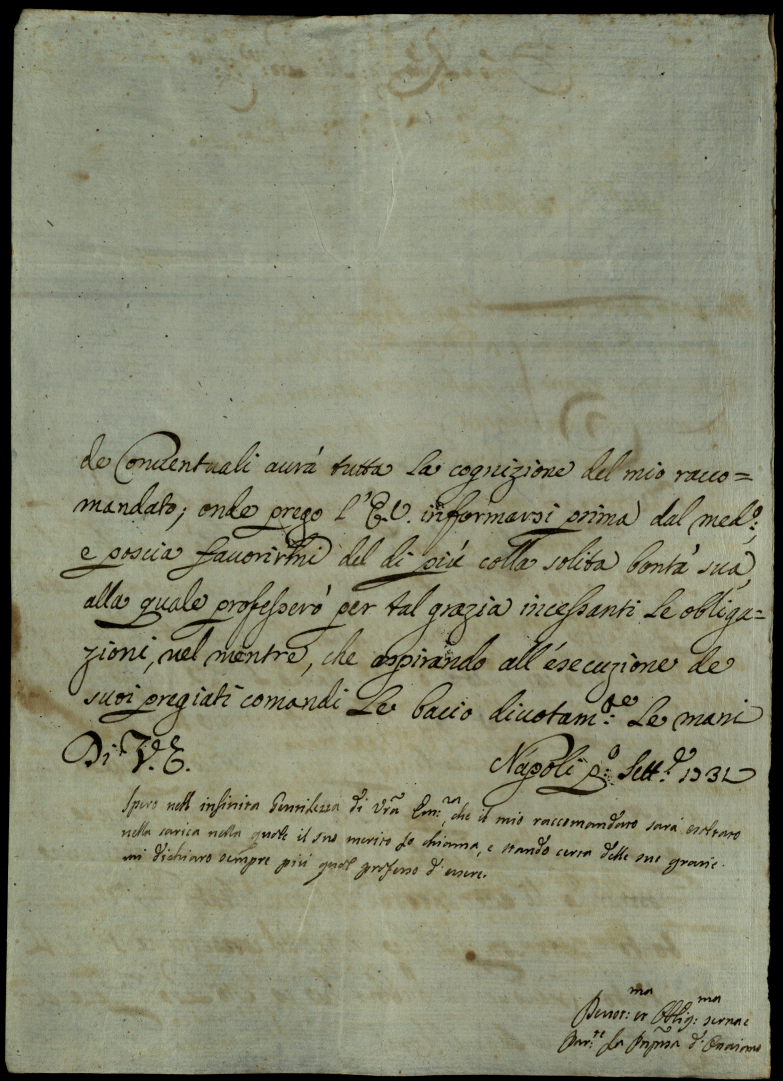 de Conuentuali aurá tutta la cognizione del mio racco=
mandato; onde prego l'E.V. informarsi prima dal med.o;
e poscia fauorirmi del di piú colla solita bontá sua,
alla quale professeró per tal grazia incessanti le obliga=
zioni, nel mentre, che aspirando all'ésecuzione de
suoi pregiati comandi le bacio diuotam.te le mani
Di V.E. Napoli p.o Sett.e 1731
Spero nell infinita Gentilezza di Vra Em.za, che il mio raccomandato sará esaltato
nella carica nella quale il suo merito lo chiama, e stando certa delle sue grazie
mi dichiaro sempre piú qual professo d'essere.
Deuot.ma et Oblig.ma serua e
Par.te La Prñpsa d'